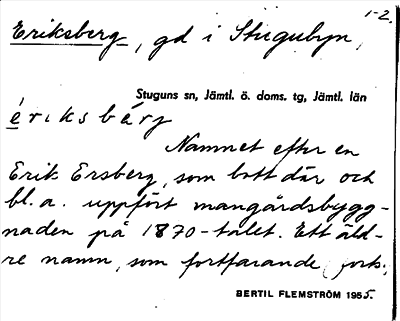 1-2.
Eriksberg, gd i Stugubyn,
Stuguns sn, Jämtl. ö. doms. tg, Jämtl. län
ériksbérj
Namnet efter en
Erik Ersberg, som bott där och
bl. a. uppfört mangårdsbygg-
naden på 1870-talet. Ett äld-
re namn, som fortfarande fork.,
BERTIL FLEMSTRÖM 1955.